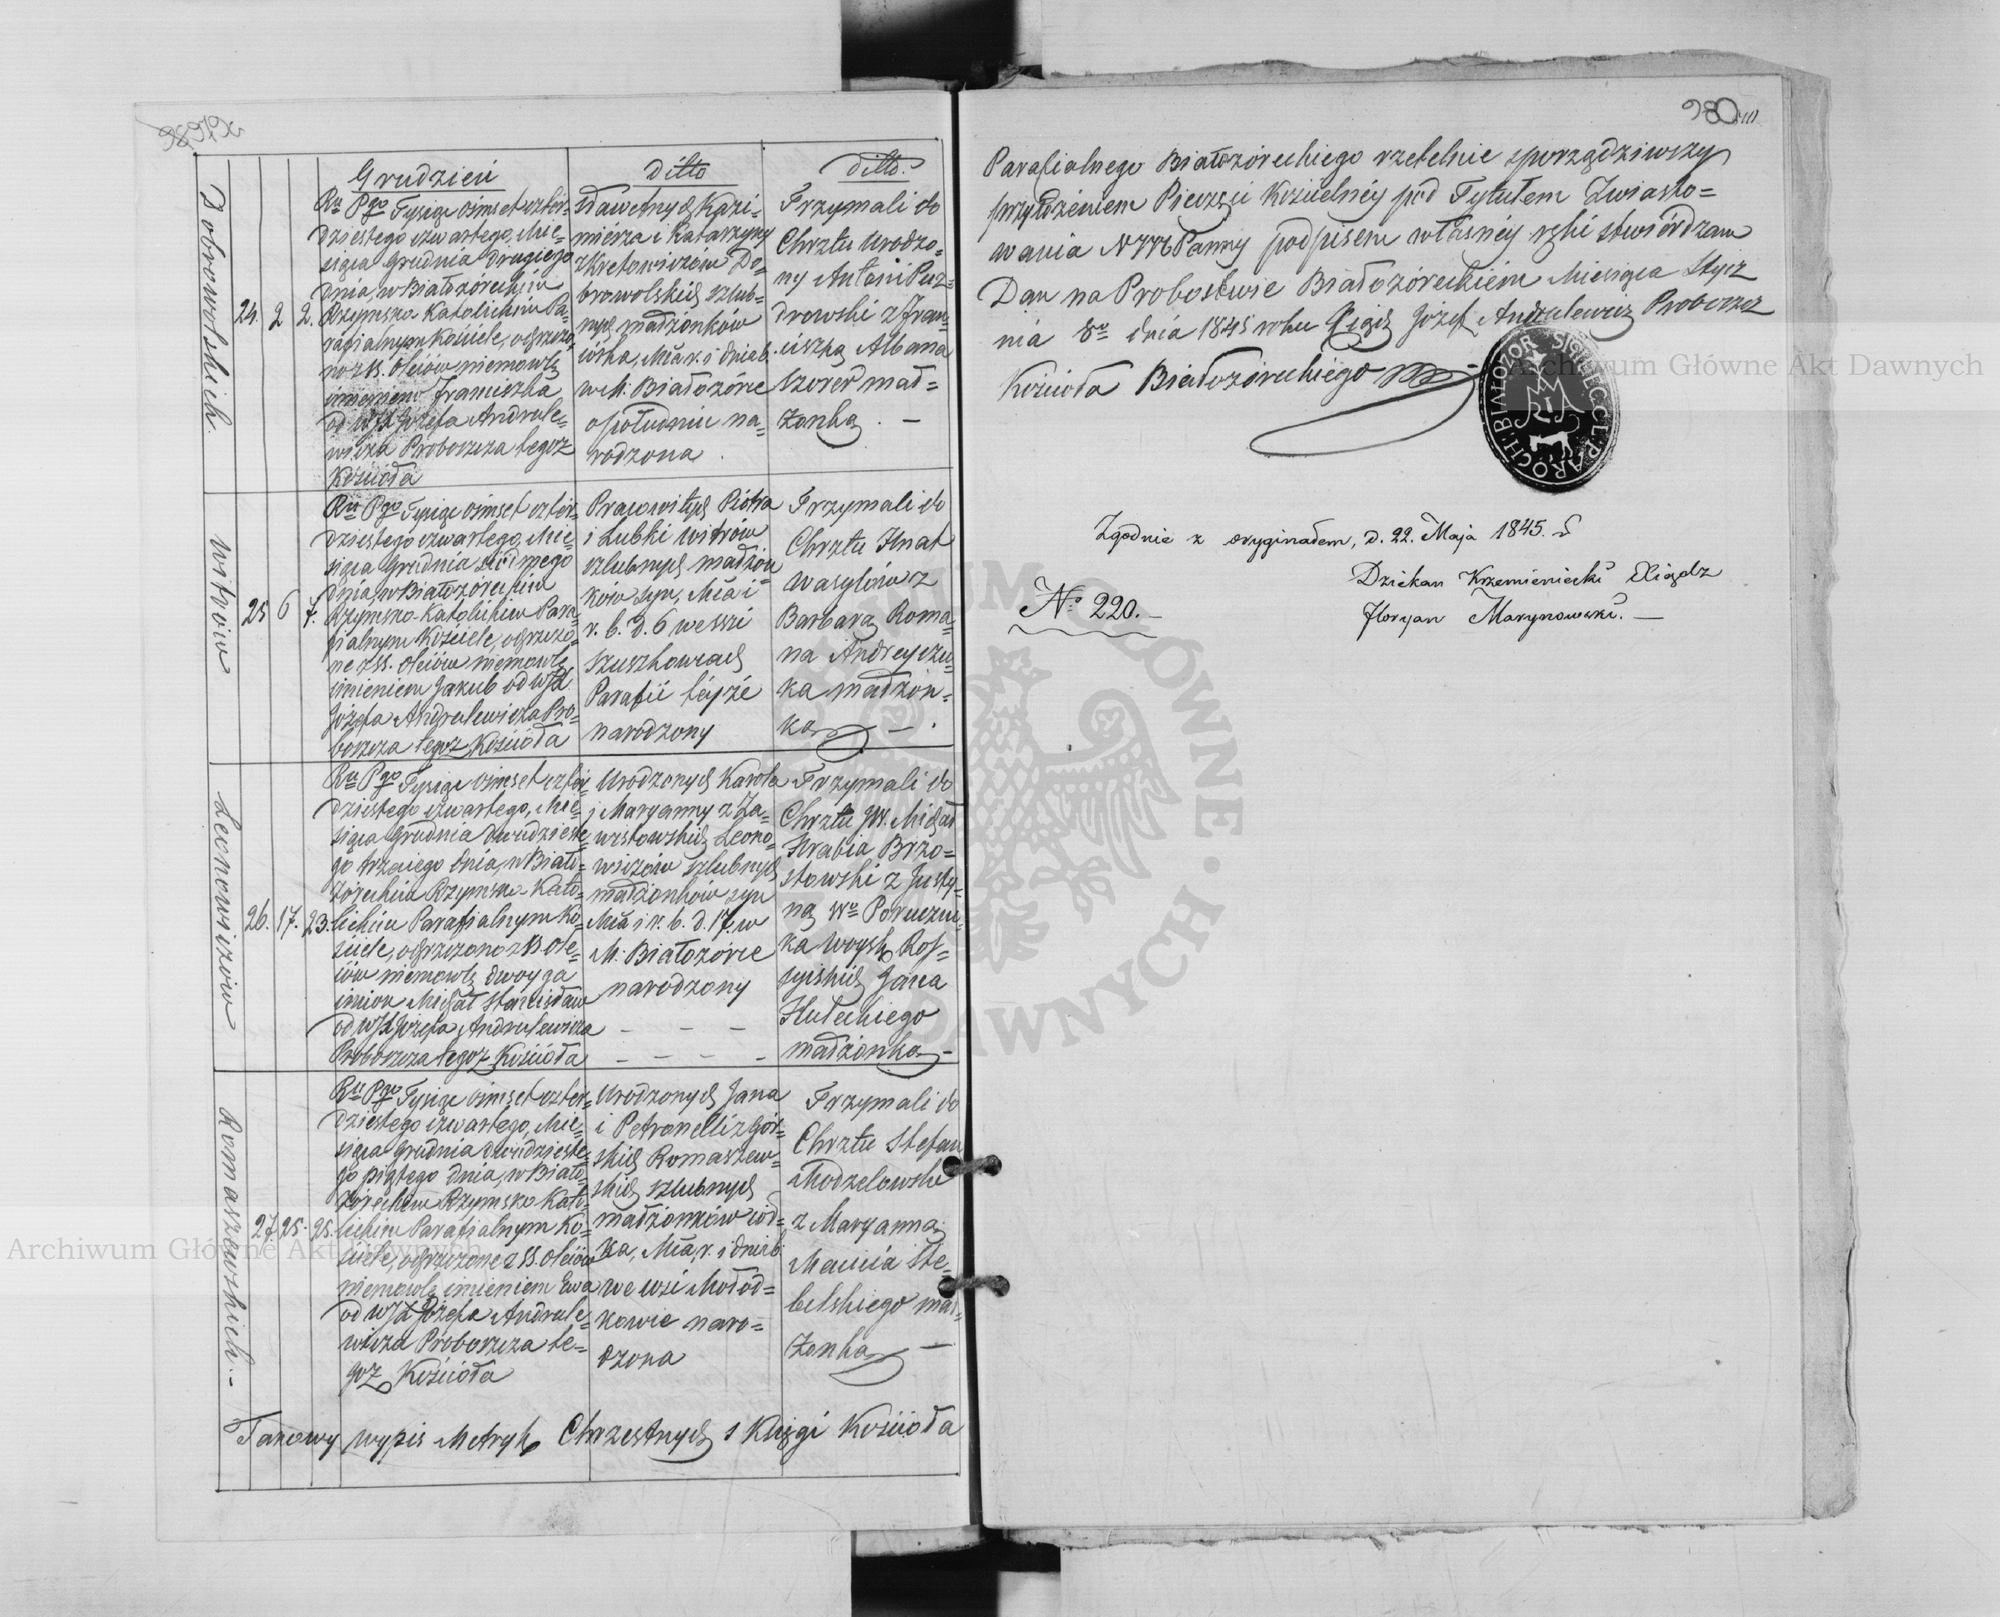 Grudzień
Ru Pgo Tysiąc ośmset czter=
dziestego czwartego, Mie=
siąca Grudnia drugiego
dnia, w Białozóreckim
Rzymsko-Katolickim Pa=
rafialnym Kościele, ochrzczo=
no z SS. Olejów niemowlę
imieniem Franciszka
od WJX Józefa Andrule=
wicza Proboszcza tegoż
Kościoła
Dobrowolskich.
24. 2 2.
Ditto
Sławetnych Kazi=
mierza i Katarzyny
z Kretowiczów Do=
browolskich szlub=
nych małżonków
córka, M-ca r. i dnia b.
w M. Białozórce
o południu na=
rodzona.
Ditto.
Trzymali do
Chrztu Urodzo=
ny Antoni Puz=
drowski z Fran=
ciszką Albana
Szorer mał=
żonką. —
Ru Pgo Tysiąc ośmset czter=
dziestego czwartego, Mie=
siąca Grudnia siódmego
dnia, w Białozóreckim
Rzymsko-Katolickim Para=
fialnym Kościele, ochrzczo=
ne z SS. Olejów niemowlę
imieniem Jakub od WJX
Józefa Andrulewicza Pro=
boszcza tegoż Kościoła
Witrów
25 6 7.
Pracowitych Piotra
i Lubki Witrów
szlubnych małżon=
ków syn, M-ca i
r. b. d. 6 we wsi
Szuszkowcach
Parafii tejże
narodzony
Trzymali do
Chrztu Hnat
Wasylów z
Barbarą Roma=
na Andrejczu=
ka małżon=
ką — .
Ru Pgo Tysiąc ośmset czter=
dziestego czwartego, Mie=
siąca Grudnia dwudzieste=
go trzeciego dnia, w Biało=
zóreckim Rzymsko-Kato=
lickim Parafialnym Ko=
ściele, ochrzczono z SS Ole=
jów niemowlę dwojga
imion Michał Stanisław
od WJX Józefa Andrulewicza
Proboszcza tegoż Kościoła
Lechowiczów
26. 17. 23.
Urodzonych Karola
i Maryanny z Za=
wistowskich Lecho=
wiczów szlubnych
małżonków syn
M-ca i r. b. d. 17. w
M. Białozórce
narodzony
Trzymali do
Chrztu JW. Michał
Hrabia Brzo=
stowski z Justy=
ną Wo Poruczni=
ka Woysk Ros=
syiskich Jana
Huleckiego
małżonką —
Ru Pgo Tysiąc ośmset czter=
dziestego czwartego, Mie=
siąca Grudnia dwudzieste=
go piątego dnia, w Biało=
zóreckim Rzymsko Kato=
lickim Parafialnym Ko=
ściele, ochrzczone z SS. Olejów
niemowlę imieniem Ewa
od WJX Józefa Andrule=
wicza Proboszcza te=
goż Kościoła
Romaszewskich. -
27. 25. 25.
Urodzonych Jana
i Petronelli z Gór=
skich Romaszew=
skich szlubnych
małżonków cór=
ka, M-ca, r. i dnia b.
we wsi Mołod=
kowie naro=
dzona
Trzymali do
Chrztu Stefan
Modzelowski
z Maryanną
Marcina Ste=
belskiego mał=
żonką —
Takowy wypis Metryk Chrzestnych z Księgi Kościoła
980
Parafialnego Białozóreckiego rzetelnie sporządziwszy
przyłożeniem Pieczęci Kościelnéy pod Tytułem Zwiasto=
wania NMP Panny podpisem własnéy ręki stwiérdzam
Dan na Probostwie Białozóreckiém Miesiąca Stycz
nia 8o dnia 1845 roku Xiądz Józef Andrulewicz Proboszcz
Kościoła Białozóreckiégo
SIGIL: ECCL: PAROCH: BIAŁOZOR
Zgodnie z oryginałem, d. 22. Maja 1845. r.
Dziekan Krzemieniecki Xiądz
Floryan Marynowski. —
No 220. —
Archiwum Główne Akt Dawnych
Archiwum Główne Akt Dawnych
ARCHIWUM GŁÓWNE AKT DAWNYCH